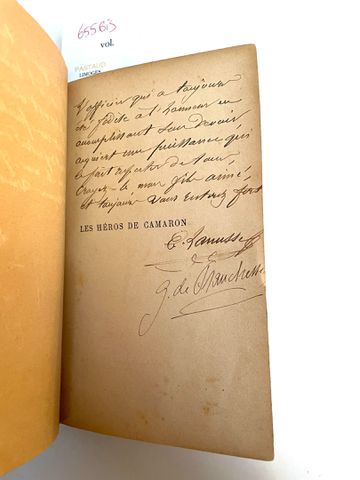 655 Bis
vol.
PASTAUD
LIMOGES
L'officier qui a toujours
été fidèle à l'honneur en
accomplissant son devoir
acquiert une puissance qui
le fait respecter de tous,
Croyez-le mon fils aimé,
et toujours vous
LES HÉROS DE CAMARON
E. Lanusse
G. de